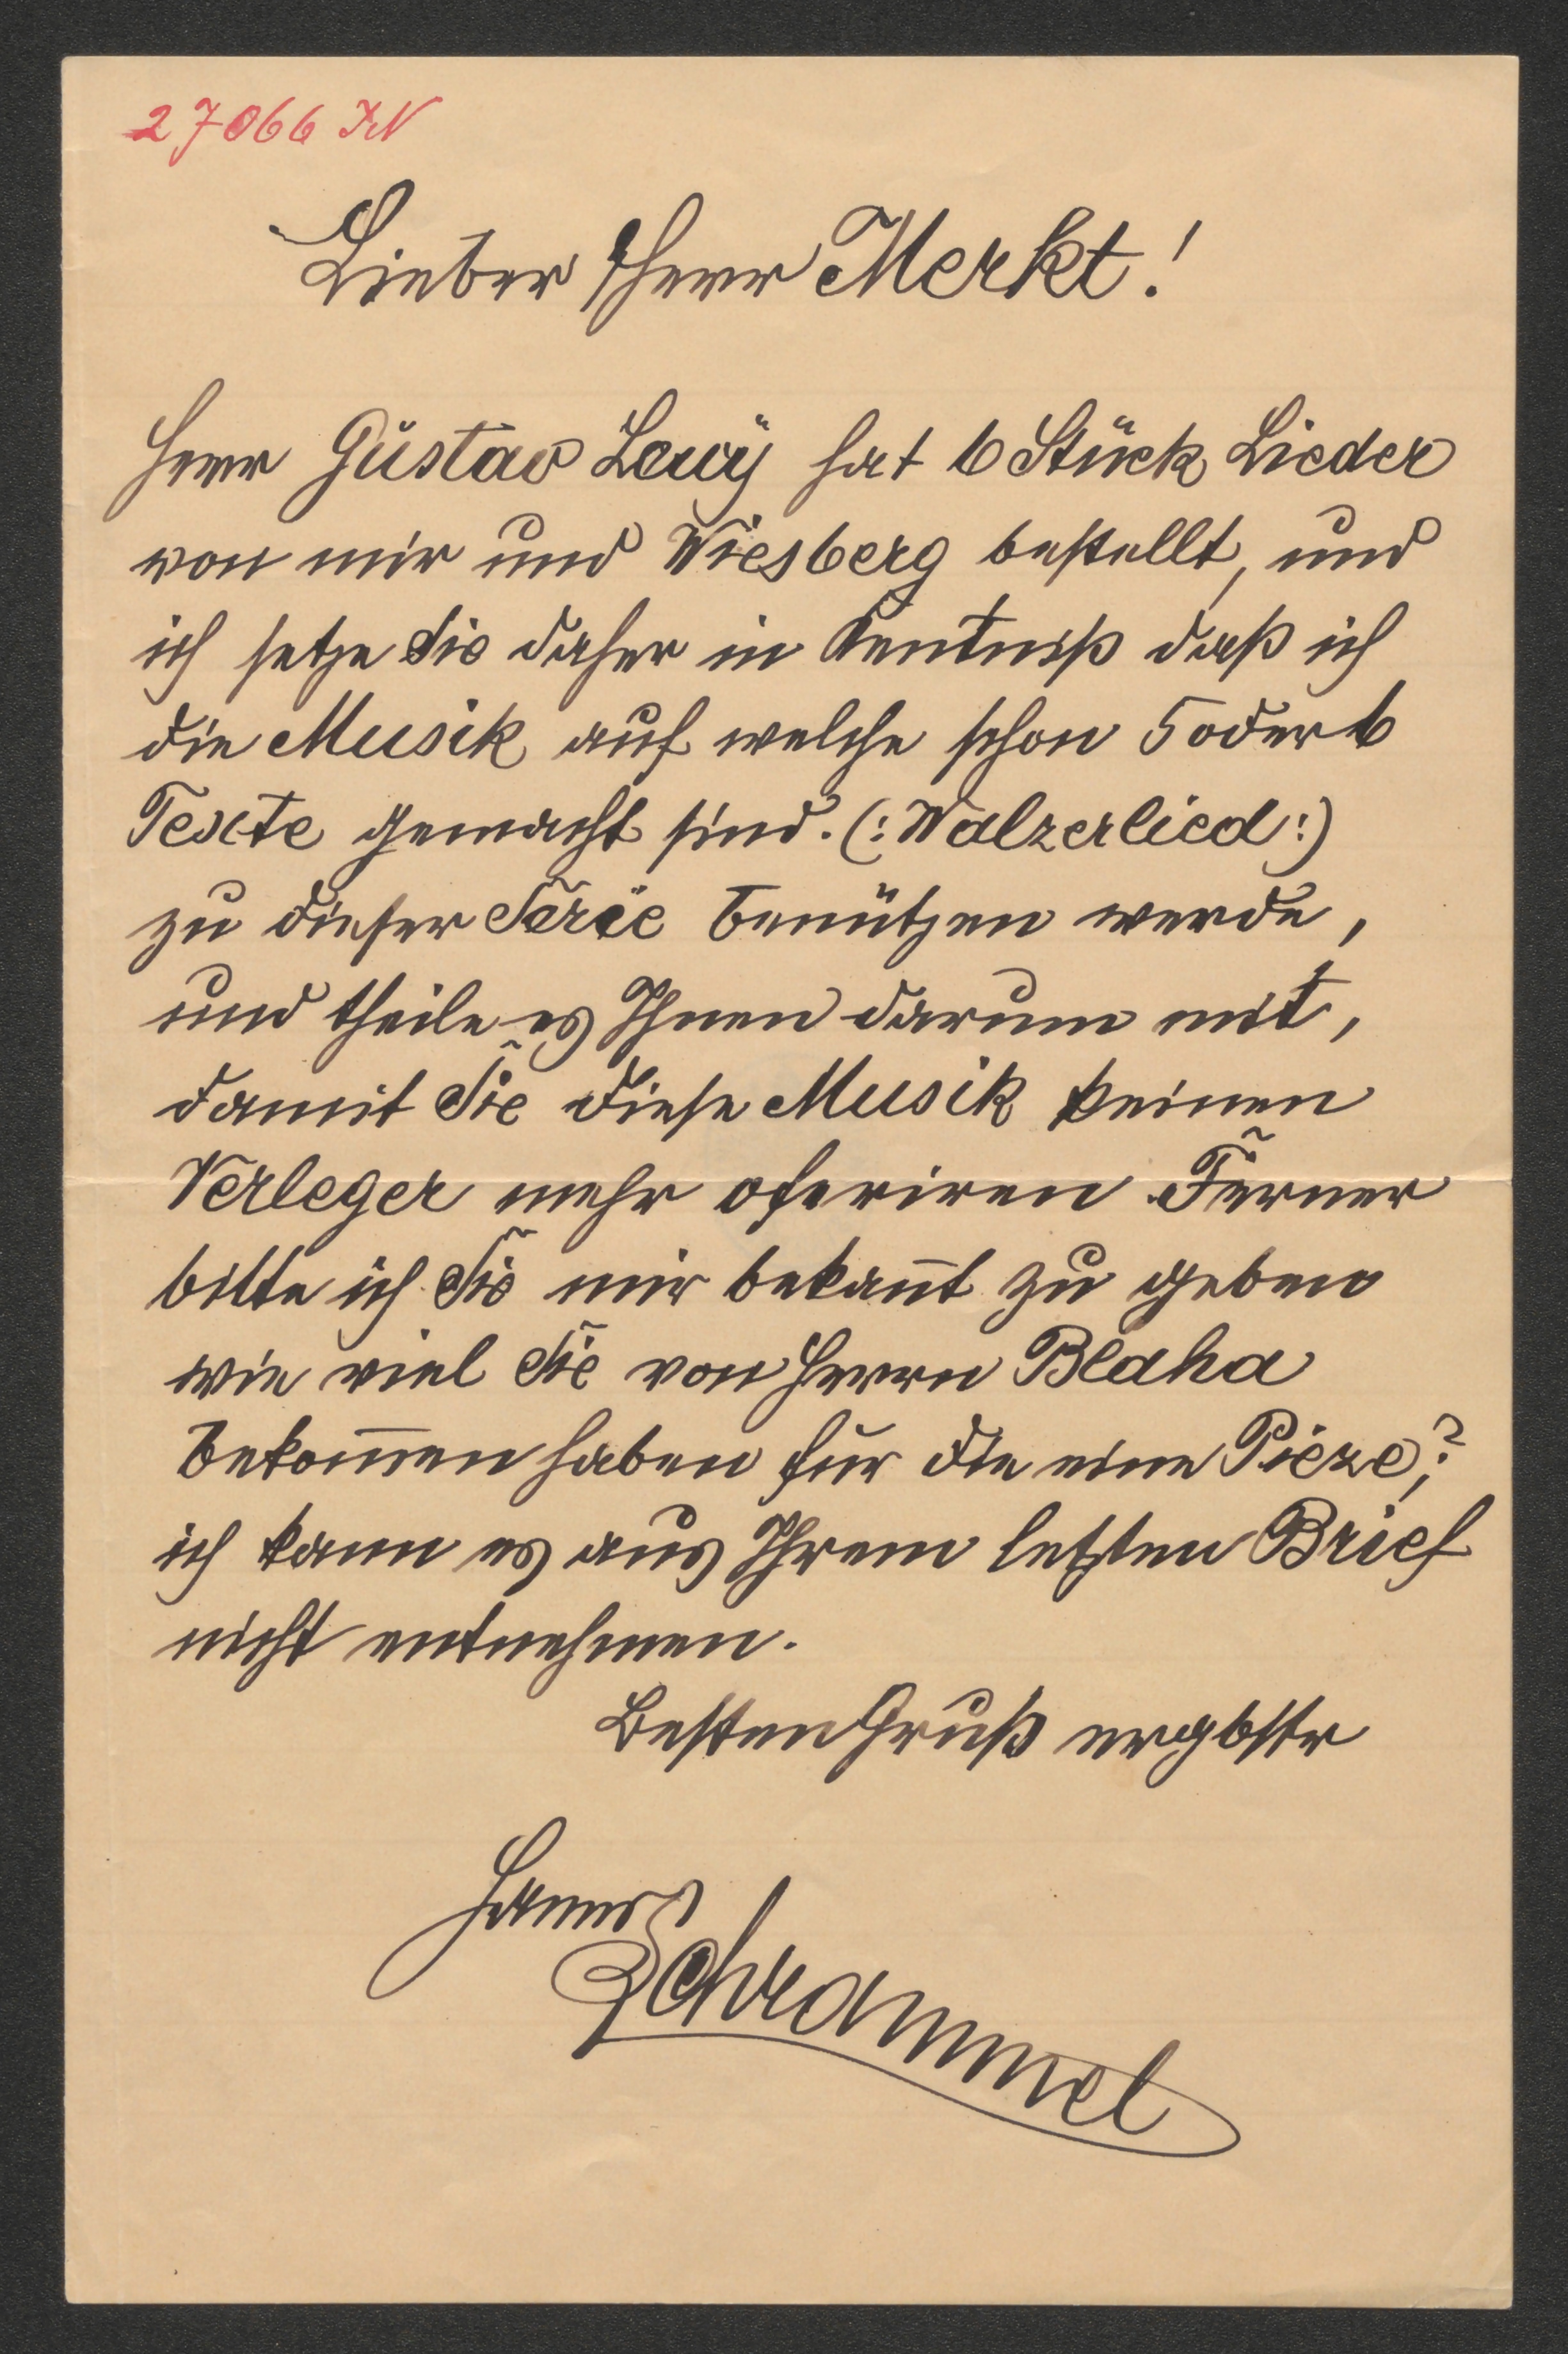 27066 IN
Lieber Herr Merkt!
Herr Gustav Lewÿ hat 6 Stück Lieder
von mir und Wiesberg bestellt, und
ich setze Sie daher in Kentniß daß ich
die Musik auf welche schon 5 oder 6
Texte gemacht sind. (: Walzerlied :)
zu dieser Serie benützen werde,
und theile es Ihnen darum mit,
damit Sie diese Musik keinen
Verleger mehr oferiren. Ferner
bitte ich Sie mir bekan̄t zu geben
wie viel Sie von Herrn Blaha
bekom̄en haben für die eine Pieze?
ich kann es aus Ihrem letzten Brief
nicht entnehmen.
Besten Gruß ergbstr
Hanns
Schrammel